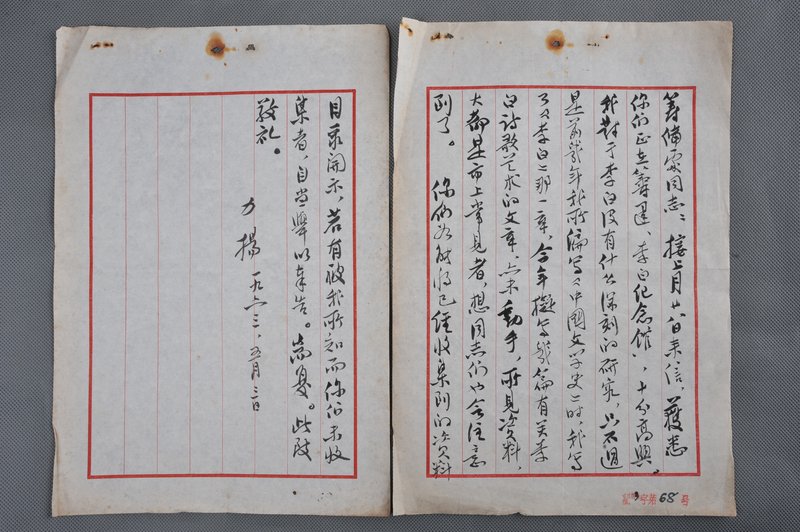 筹备处同志：接上月廿八日来信，获悉
你们正在筹建“李白纪念馆”，十分高兴。
我对于李白没有什么深刻的研究，只不过
是前几年我所编写《中国文学史》时，我写
了《李白》那一章，今年拟写几篇有关李
白诗歌艺术的文章，尚未动手，所见资料，
大都是市上常见者，想同志们也会注意
到了。你们如能将已经收集到的资料
字第68号
目录开示，若有被我所知而你们未收
集者，自当举以奉告。耑复。此致
敬礼。
力扬 一九六三、五月三日